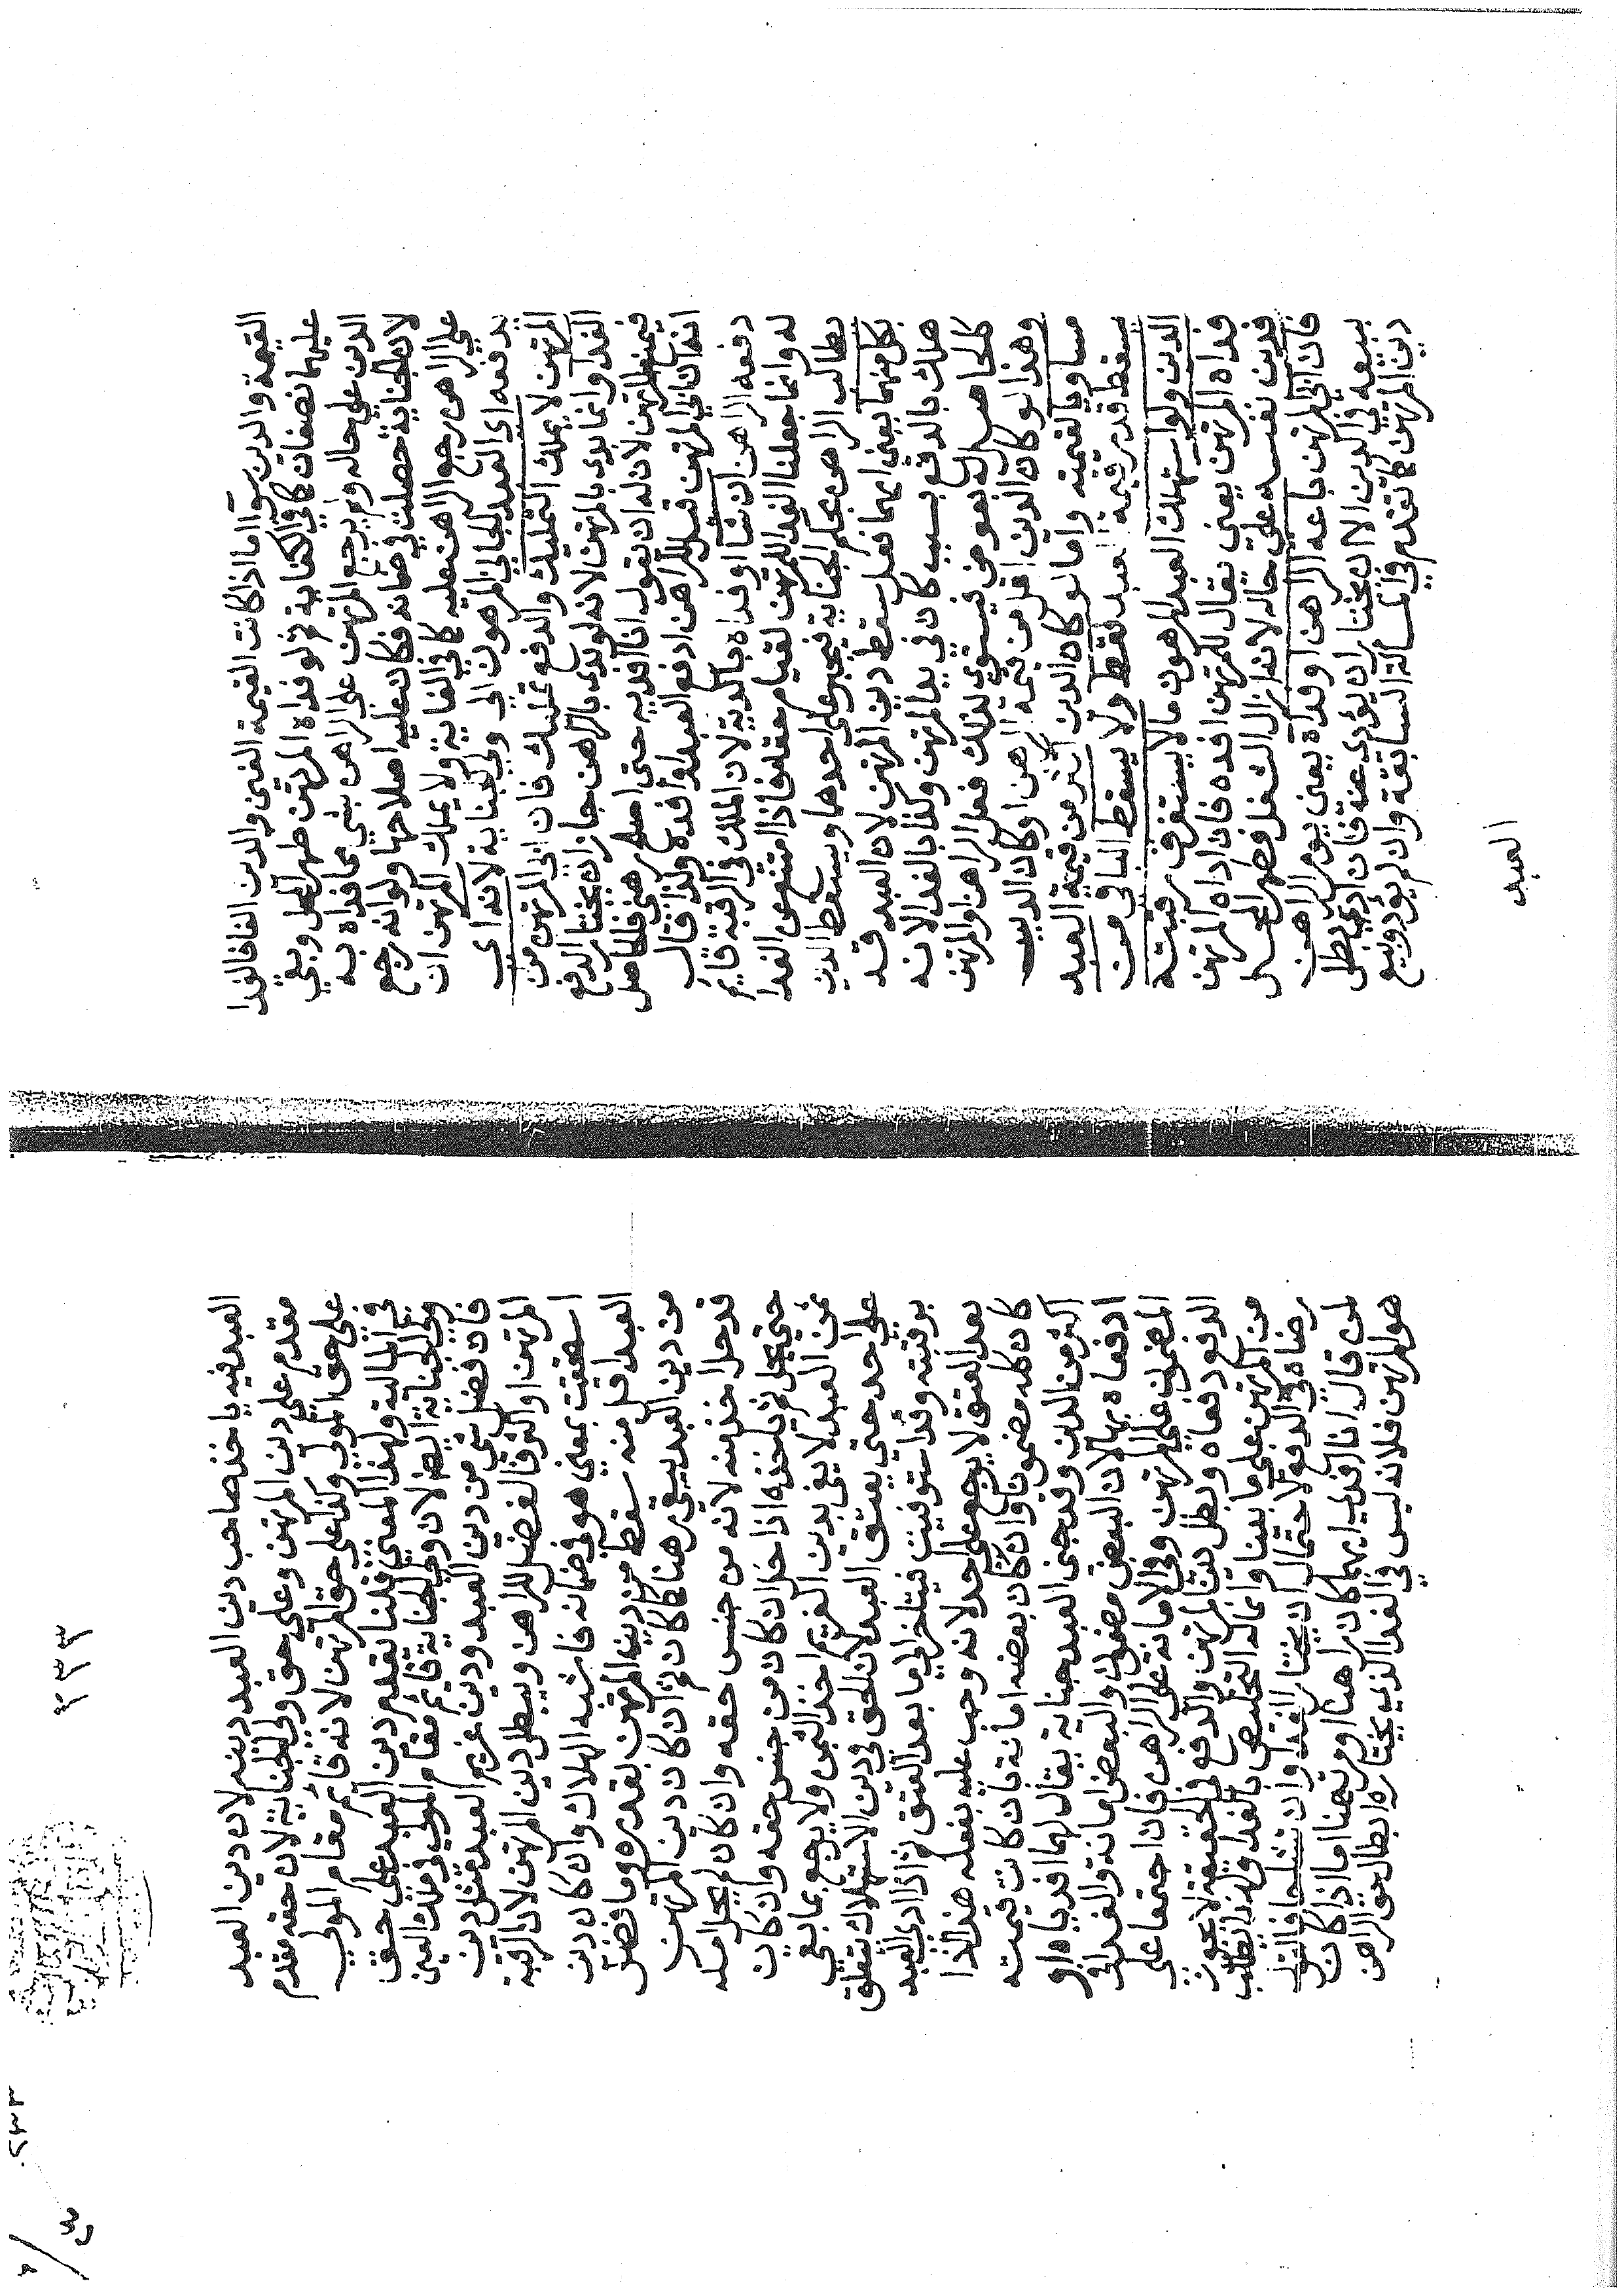 القيمة والدين سوآ اما اذا كانت القيمة الفي والدين الفا فالفدا
عليهما نصفان كما في الكفاية ثم لو فداه المرتهن طهر المحل وبقي
الدين علي حاله ولم يرجع المرتهن على الراهن بشي مما فداه به
لان الجناية حصلت في ضمانه فكان عليه اصلاحها ولو انه رجع
علي الراهن رجع الراهن عليه كما في الغاية ولا يملك المرتهن ان
يدفعه اي العبد الجاني المرهون الي ولي الجناية لانه اي
المرتهن لا يملك التمليك والدفع تمليك فان ابي المرتهن من
الفدا وانما بدى بالمرتهن لانه لو بدى بالراهن جاز ان يختار الدفع
فيمنع المرتهن لان له ان يقول انا افديه حتى اصلح رهني فالحاصل
انه ان ابي المرتهن قيل للراهن ادفع العبد او افده ولذا قال
دفعه الراهن ان شا او فداه بالدية لان الملك في الرقبة قايم
له وانما جعلنا الفدا للمرتهن لقيام حقه فاذا امتنع عن الفدا
يطالب الراهن بحكم الجناية فيخير على احدهما ويسقط الدين
بكل منهما يعني ايهما فعل سقط دين المرتهن لان العبد قد
هلك بالدفع بسبب كان في يد المرتهن وكذا بالفدا لانه
كالحاصل له بعوض فيستوي لذلك فعل الراهن والمرتهن
وهذا لو كان الدين اقل من قيمة الرهن او كان الدين
مساويا لقيمته واما لو كان الدين اكثر من قيمة العبد
سقط قدر قيمة العبد فقط ولا يسقط الباقي من
الدين ولو استهلك العبد المرهون مالا يستغرق رقبته
فداه المرتهن يعني يقال للمرتهن افده فان اداه المرتهن
فدين نفسه علي حاله لانه ازال الشغل فطهر المحل
فان ابي المرتهن باعه الراهن او فداه يعني يومر الراهن
ببيعه في الدين الا ان يختار ان يؤدي عنه فان ادي بطل
دين المرتهن كما تقدم في المسالة السابقة وان لم يؤد وبيع
العبد
٢٣٣
العبد فيه ياخذ صاحب دين العبد دينه لان دين العبد
مقدم علي دين المرتهن وعلي حق ولي الجناية لان حقه مقدم
علي حق المولي وكذا علي حق المرتهن لانه قائم مقام المولي
في المالية ولهذا المعني قلنا بتقديم دين العبد علي حق
ولي الجناية ايضا لان ولي الجناية قائم مقام المولي في ملك العين
فان فضل شي من دين العبد ودين غريم العبد مثل دين
المرتهن او اكثر فالفضل للراهن ويبطل دين المرتهن لان الرقبة
استحقت بمعني هو في ضمانه فاشبه الهلاك وان كان دين
العبد اقل منه سقط من دين المرتهن بقدره وما فضل
من دين العبد يبقي رهنا كما كان ثم ان كان دين المرتهن
قد حل اخذ منه لانه من جنس حقه وان كان لم يحل امسكه
حتي يحل ثم ياخذه اذا حل ان كان من جنس حقه وان كان
ثمن العبد لا يفي بدين الغريم اخذ الثمن ولا يرجع بما بقي
علي احد حتي يعتق العبد لان الحق في دين الاستهلاك يتعلق
برقبته وقد استوفيت فيتاخر الي ما بعد العتق ثم اذا ادي العبد
بعد العتق لا يرجع علي احد لانه وجب عليه بفعله هذا اذا
كان كله مضمونا وان كان بعضه امانة بان كانت قيمته
اكثر من الدين وقد جني العبد جناية يقال لهما افدياه او
ادفعاه بها لان البعض مضمون والبعض امانة والفدا في
المضمون علي المرتهن وفي الامانة علي الراهن فان اجتمعا علي
الدفع دفعاه وبطل دين المرتهن والدفع في الحقيقة لا يجوز
من المرتهن علي ما بينا وانما له التخلص بالفدا ولهذا يطلب
رضاه في الدفع لاحتمال ان يختار الفدا وان تشاحا فالقول
لمن قال انا افدي ايهما كان راهنا او مرتهنا اما اذا كان
هو المرتهن فلانه ليس في الفدا الذي يختاره ابطال حق الراهن